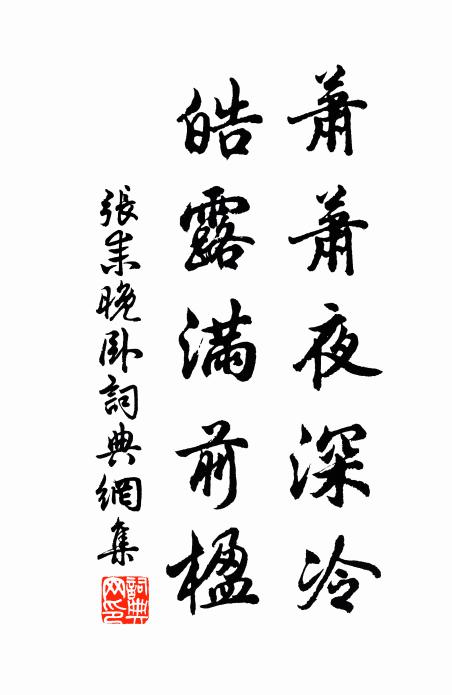 蕭蕭夜深冷
皓露滿前楹
張耒晚臥詞典網集
詞典网印